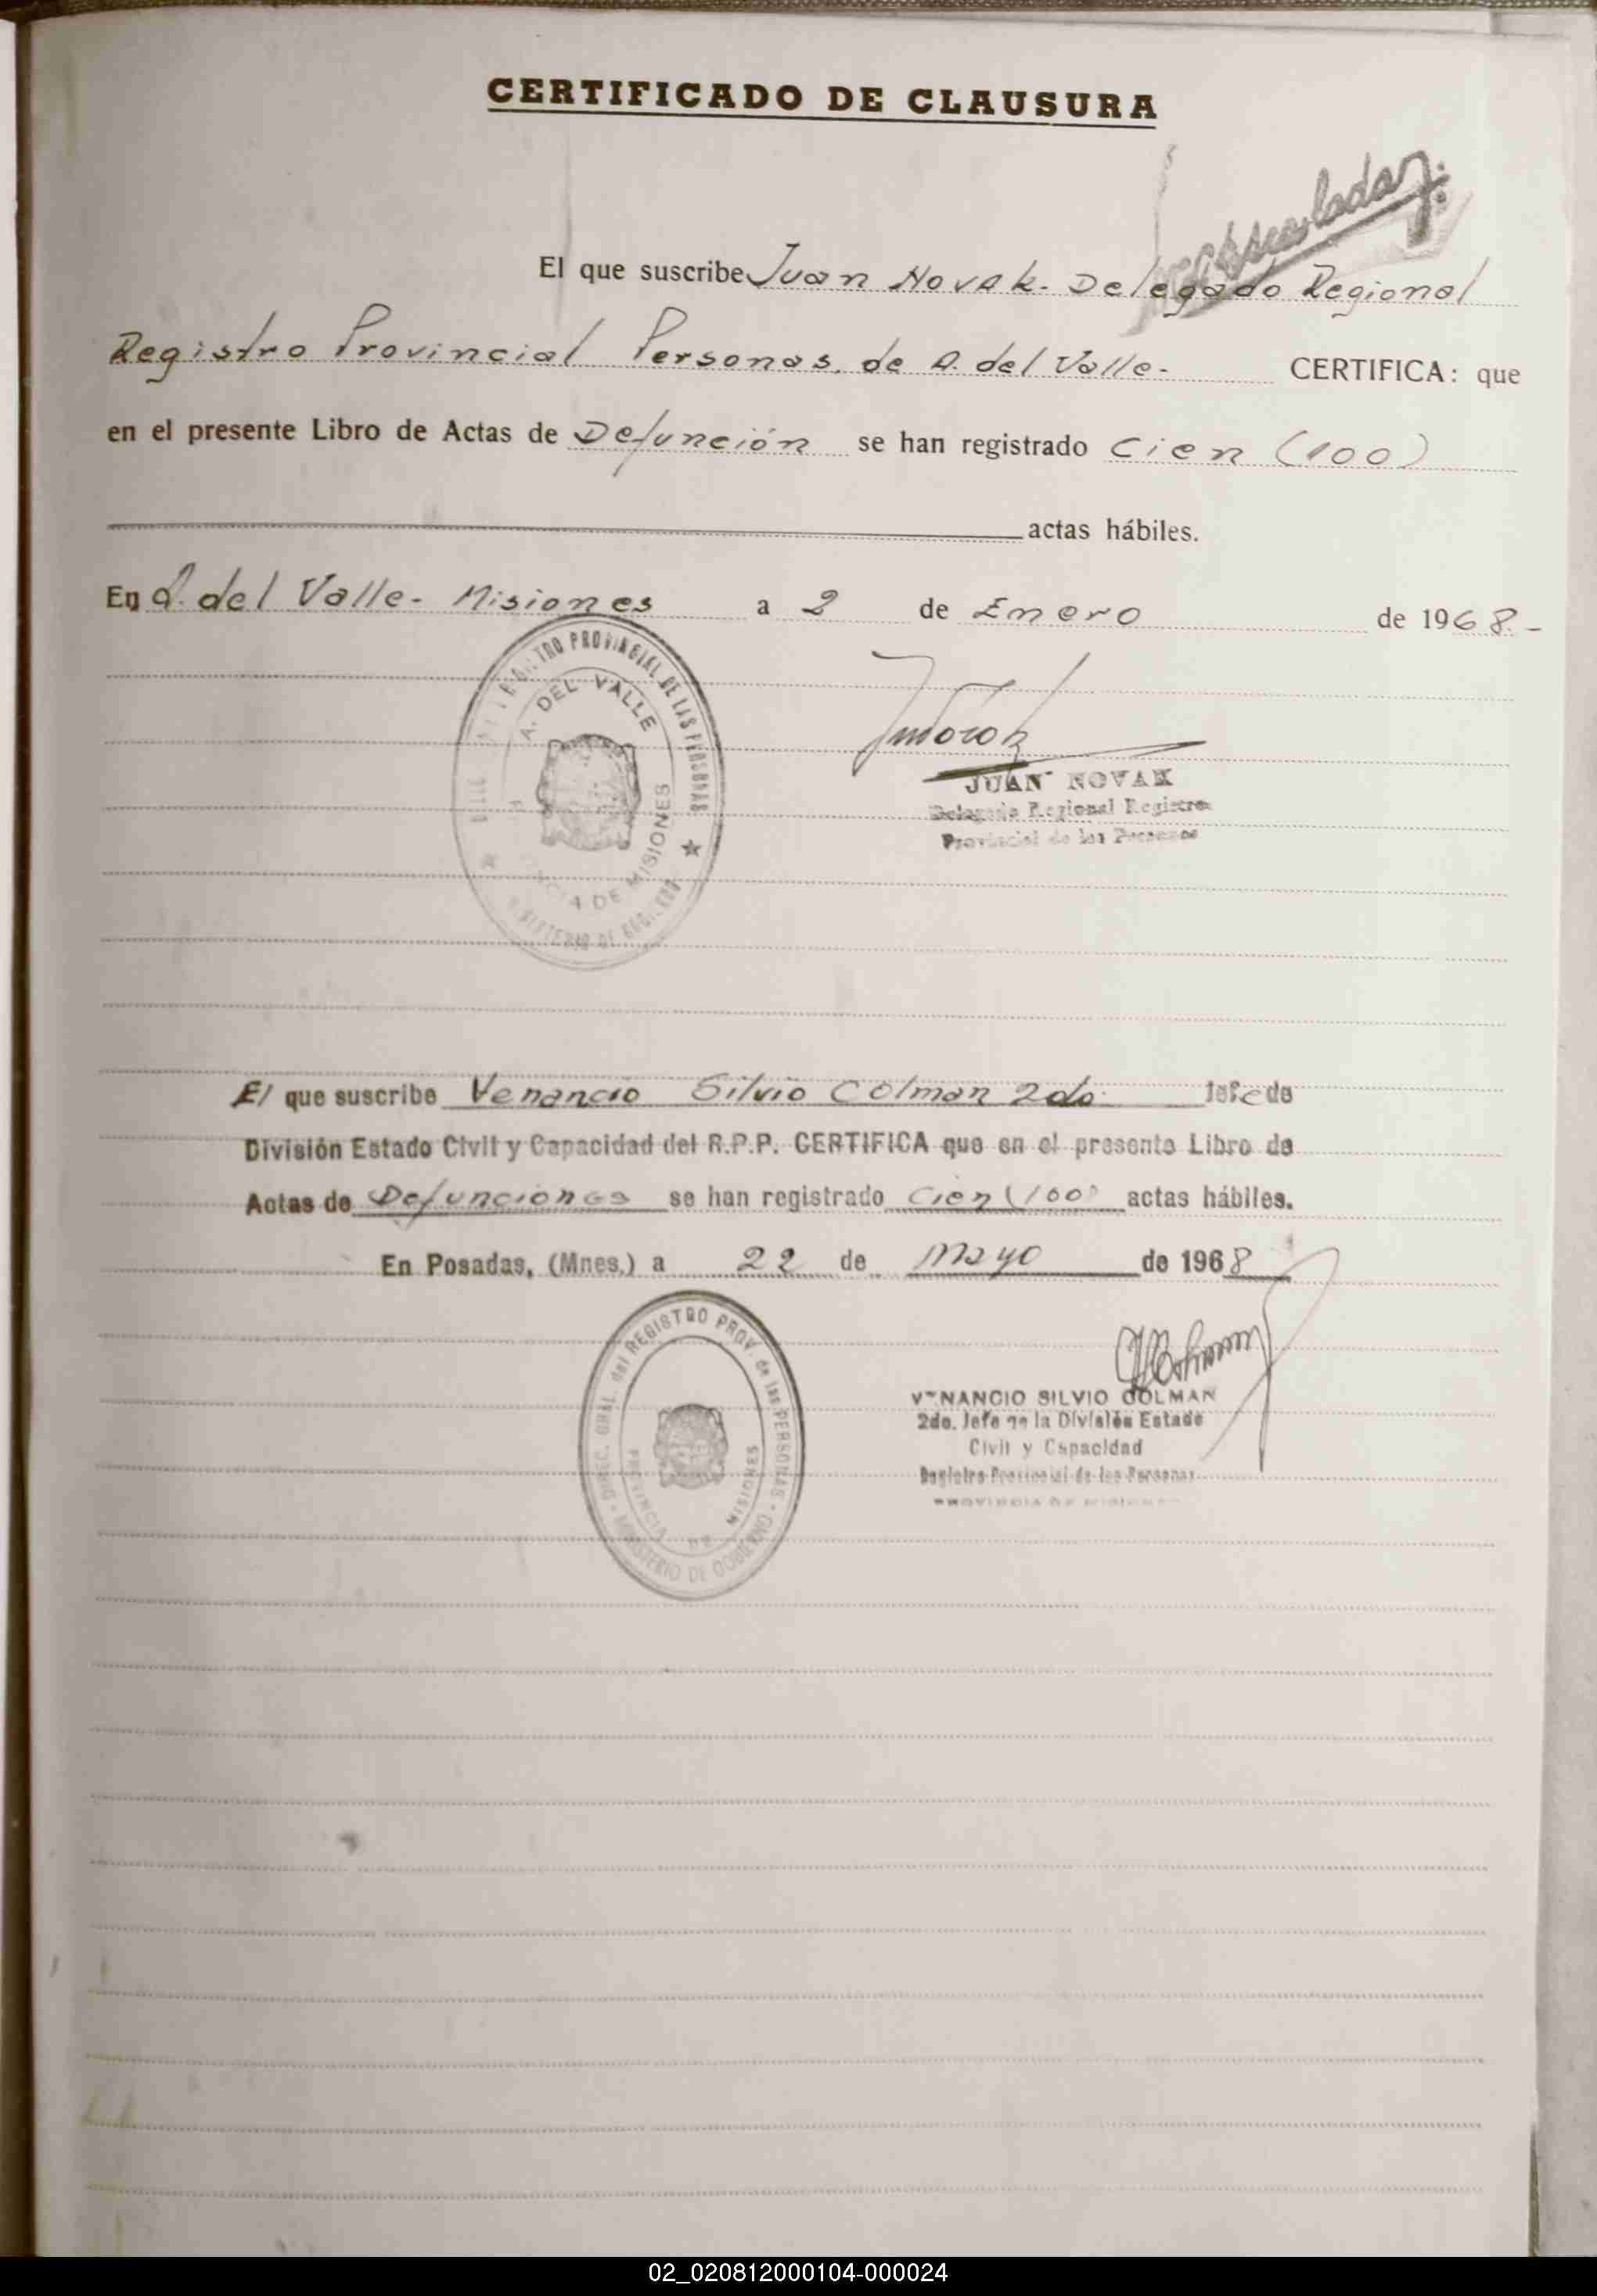 CERTIFICADO DE CLAUSURA
El que suscribe Juan Novak. Delegado Regional
Registro Provincial Personas. de A. del Valle.- CERTIFICA: que
en el presente Libro de Actas de Defunción se han registrado Cien (100)
actas hábiles.
En A. del Valle- Misiones a 2 de Enero de 1968.-
PROVINCIAL DE LAS PERSONAS
A. DEL VALLE
DE MISIONES
JUAN NOVAK
Delegado Regional Registro
Provincial de las Personas
El que suscribe Venancio Silvio Colman 2do. Jefe de
División Estado Civil y Capacidad del R.P.P. CERTIFICA que en el presente Libro de
Actas de Defunciones se han registrado Cien (100) actas hábiles.
En Posadas, (Mnes.) a 22 de Mayo de 1968
DIREC. GRAL. del REGISTRO PROV. de las PERSONAS - MINISTERIO DE GOBIERNO -
PROVINCIA DE MISIONES
VENANCIO SILVIO COLMAN
2do. Jefe de la División Estado
Civil y Capacidad
Registro Provincial de las Personas
PROVINCIA DE MISIONES
02_020812000104-000024